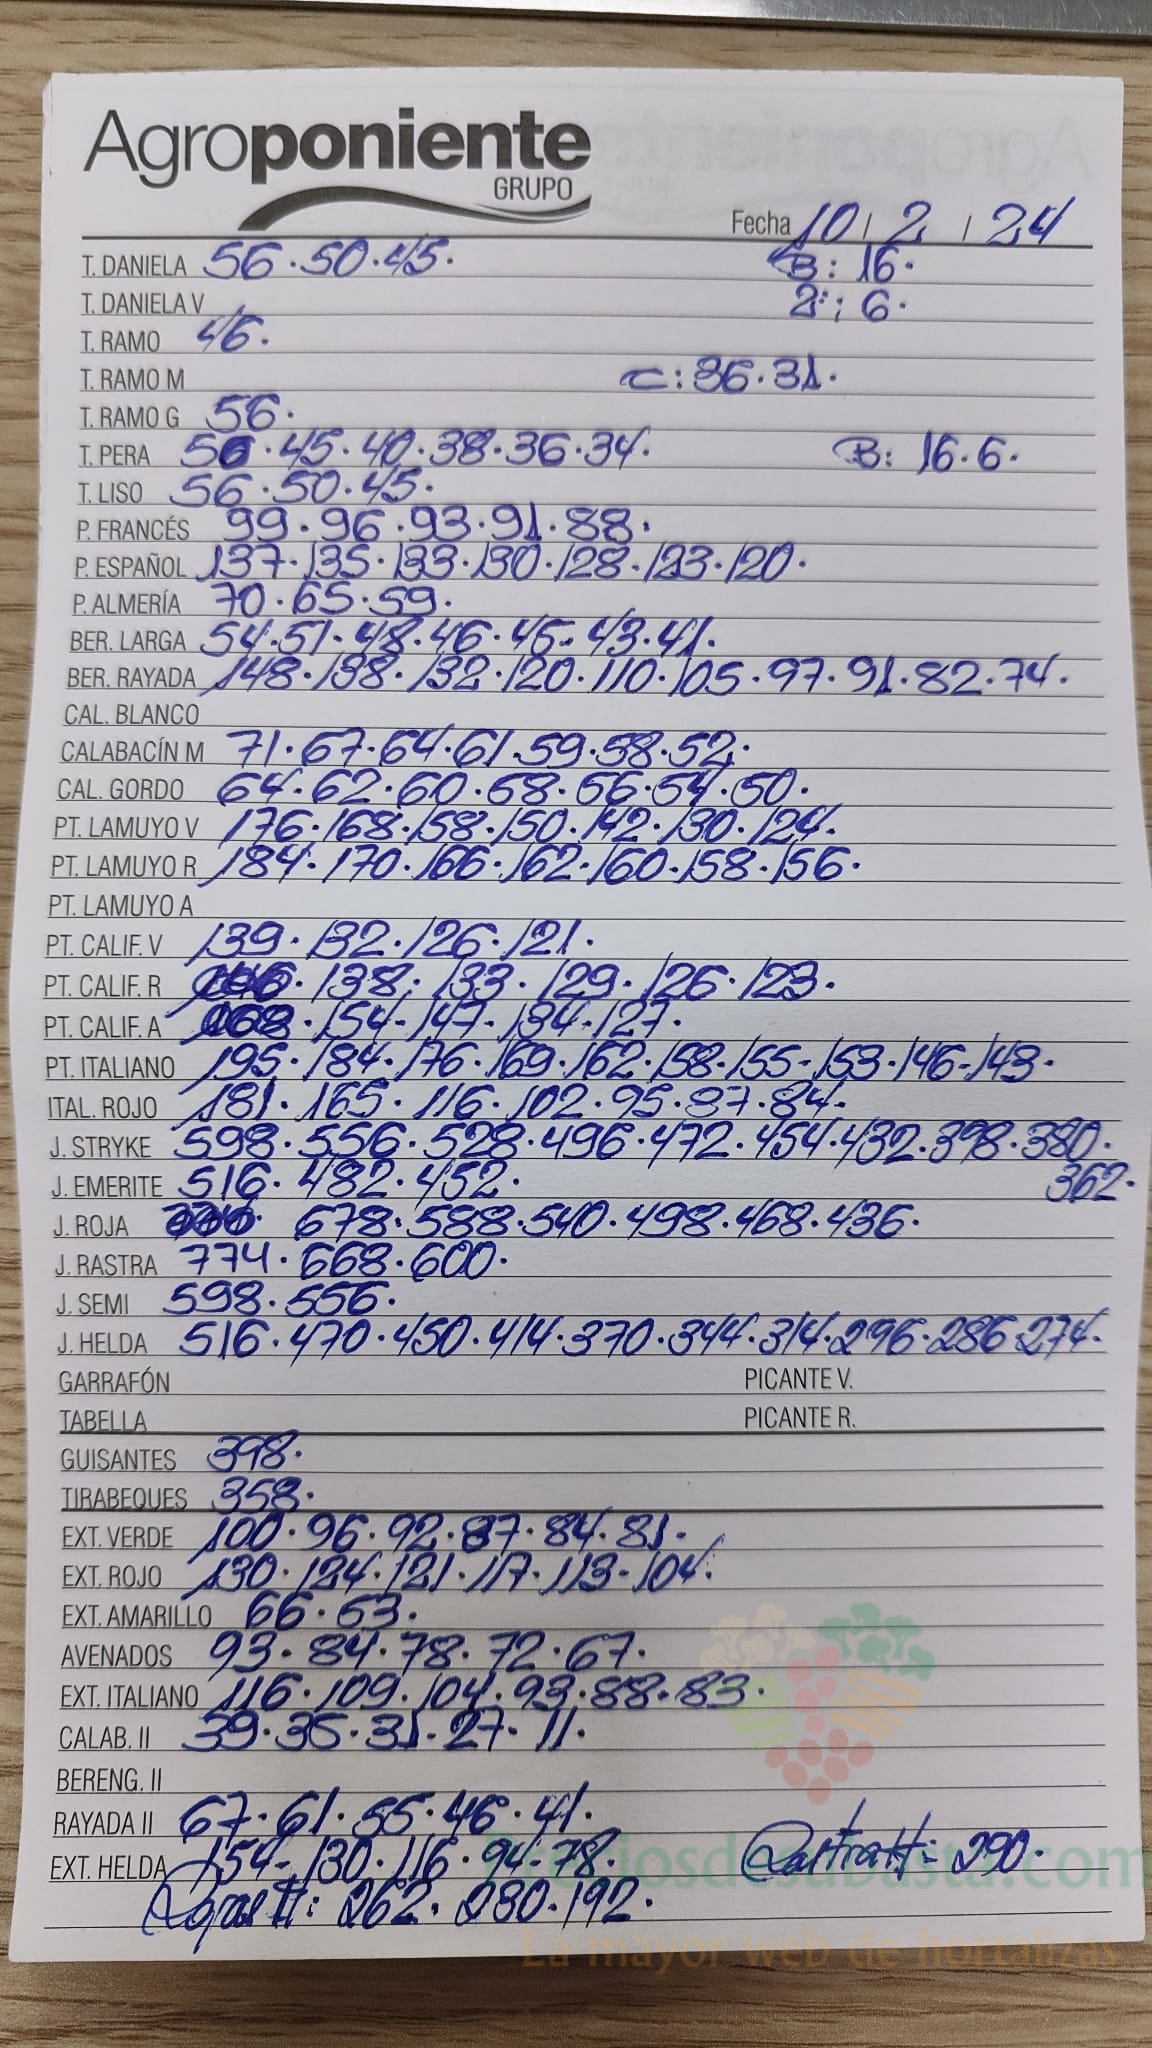 Agroponiente
GRUPO
Fecha 10 / 2 / 24
T. DANIELA 56 . 50 . 45 . B: 16 .
T. DANIELA V 2ª: 6 .
T. RAMO 46 .
T. RAMO M C: 36 . 31 .
T. RAMO G 56 .
T. PERA 56 . 45 . 40 . 38 . 36 . 34 . B: 16 . 6 .
T. LISO 56 . 50 . 45 .
P. FRANCÉS 99 . 96 . 93 . 91 . 88 .
P. ESPAÑOL 137 . 135 . 133 . 130 . 128 . 123 . 120 .
P. ALMERÍA 70 . 65 . 59 .
BER. LARGA 54 . 51 . 48 . 46 . 45 . 43 . 41 .
BER. RAYADA 148 . 138 . 132 . 120 . 110 . 105 . 97 . 91 . 82 . 74 .
CAL. BLANCO
CALABACÍN M 71 . 67 . 64 . 61 . 59 . 58 . 52 .
CAL. GORDO 64 . 62 . 60 . 58 . 56 . 54 . 50 .
PT. LAMUYO V 176 . 168 . 158 . 150 . 142 . 130 . 124 .
PT. LAMUYO R 184 . 170 . 166 . 162 . 160 . 158 . 156 .
PT. LAMUYO A
PT. CALIF. V 139 . 132 . 126 . 121 .
PT. CALIF. R . 138 . 133 . 129 . 126 . 123 .
PT. CALIF. A . 154 . 147 . 134 . 127 .
PT. ITALIANO 195 . 184 . 176 . 169 . 162 . 158 . 155 . 153 . 146 . 143 .
ITAL. ROJO 181 . 165 . 116 . 102 . 95 . 87 . 84 .
J. STRYKE 598 . 556 . 528 . 496 . 472 . 454 . 432 . 398 . 380 .
J. EMERITE 516 . 482 . 452 . 362 .
J. ROJA 678 . 588 . 540 . 498 . 468 . 436 .
J. RASTRA 774 . 668 . 600 .
J. SEMI 598 . 556 .
J. HELDA 516 . 470 . 450 . 414 . 370 . 344 . 314 . 296 . 286 274 .
GARRAFÓN PICANTE V.
TABELLA PICANTE R.
GUISANTES 398 .
TIRABEQUES 358 .
EXT. VERDE 100 . 96 . 92 . 87 . 84 . 81 .
EXT. ROJO 130 . 124 . 121 . 117 . 113 . 104 .
EXT. AMARILLO 66 . 63 .
AVENADOS 93 . 84 . 78 . 72 . 67 .
EXT. ITALIANO 116 . 109 . 104 . 93 . 88 . 83 .
CALAB. II 39 . 35 . 31 . 27 . 11 .
BERENG. II
RAYADA II 67 . 61 . 55 . 46 . 41 .
EXT. HELDA 154 . 130 . 116 . 94 . 78 . Rastra II: 290 .
II: 262 . 230 . 192 .
Preciosdesubasta.com
La mayor web de hortalizas